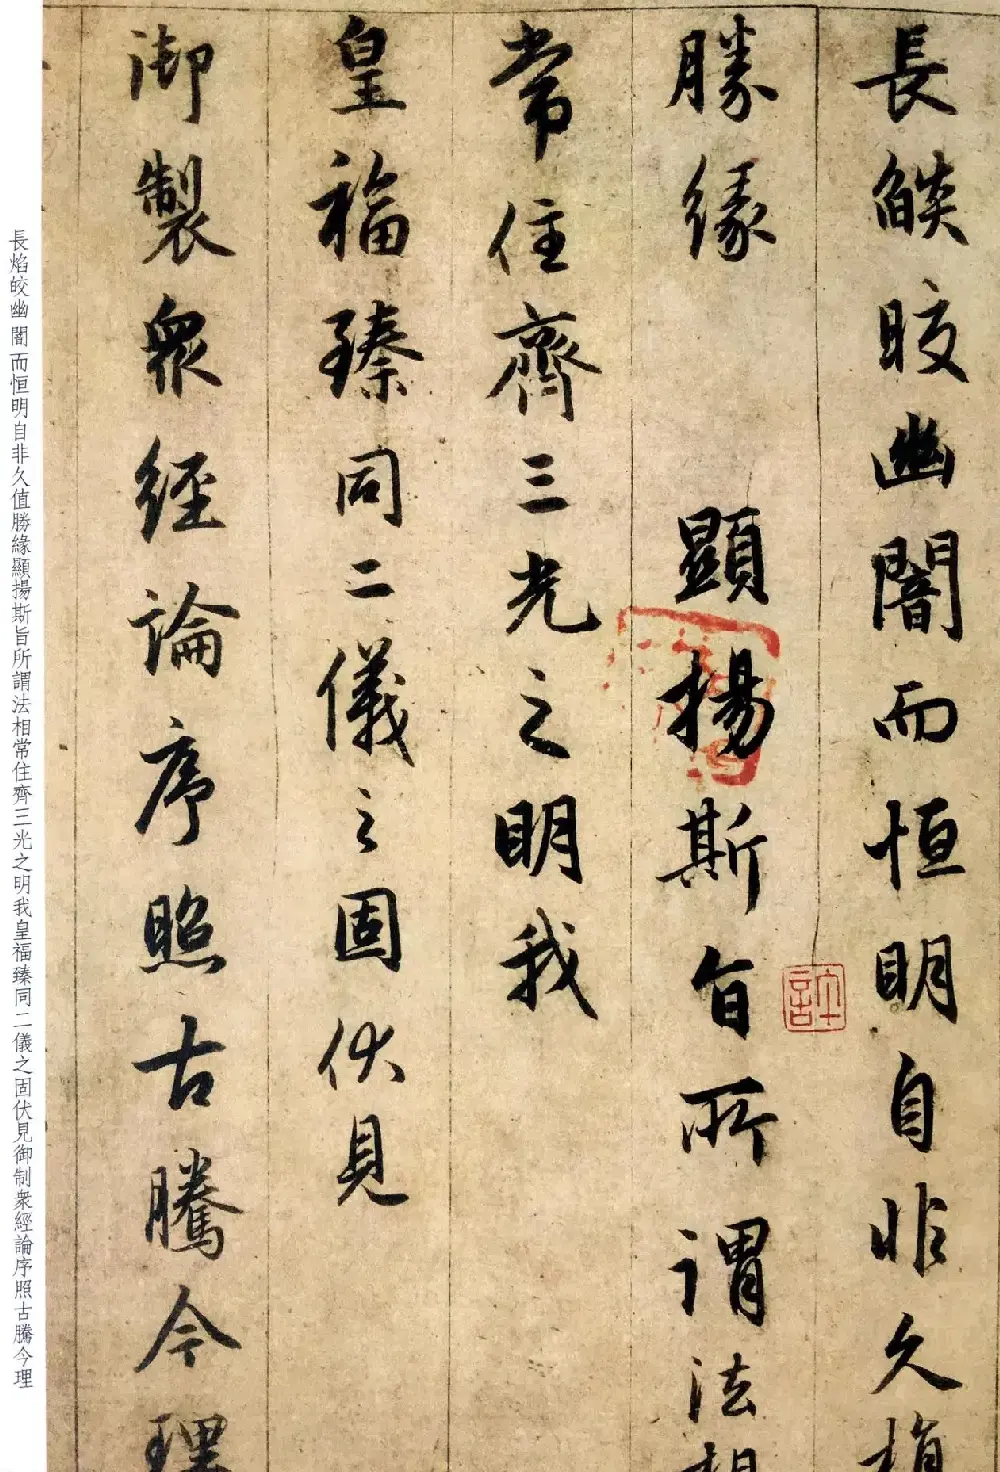 長燄皎幽闇而恒明自非久植
勝緣顯揚斯旨所謂法相
常住齊三光之明我
皇福臻同二儀之固伏見
御製衆經論序照古騰今理
長焰皎幽闇而恒明自非久值勝緣顯揚斯旨所謂法相常住齊三光之明我皇福臻同二儀之固伏見御制衆經論序照古騰今理